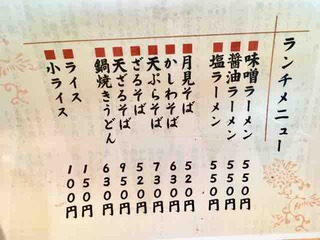 ランチメニュー
味噌ラーメン 550円
醤油ラーメン 550円
塩ラーメン 550円
月見そば 520円
かしわそば 630円
天ぷらそば 730円
ざるそば 520円
天ざるそば 950円
鍋焼きうどん 630円
ライス 150円
小ライス 100円